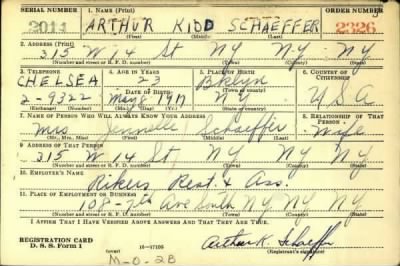 SERIAL NUMBER 1. NAME (Print) ORDER NUMBER
2014 ARTHUR KIDD SCHAEFFER 2326
(First) (Middle) (Last)
2. ADDRESS (Print)
315 W 14 St NY NY NY
(Number and street or R. F. D. number) (Town) (County) (State)
3. TELEPHONE 4. AGE IN YEARS 5. PLACE OF BIRTH 6. COUNTRY OF CITIZENSHIP
CHELSEA 23 Bklyn
DATE OF BIRTH (Town or county)
2-9322 May 1917 NY USA
(Exchange) (Number) (Mo.) (Day) (Yr.) (State or country)
7. NAME OF PERSON WHO WILL ALWAYS KNOW YOUR ADDRESS 8. RELATIONSHIP OF THAT PERSON
Mrs Schaeffer Wife
(Mr., Mrs., Miss) (First) (Middle) (Last)
9. ADDRESS OF THAT PERSON
315 W 14 St NY NY NY
(Number and street or R. F. D. number) (Town) (County) (State)
10. EMPLOYER'S NAME
Rikers Rest. & Ass.
11. PLACE OF EMPLOYMENT OR BUSINESS
108-7th Ave South NY NY NY
(Number and street or R. F. D. number) (Town) (County) (State)
I AFFIRM THAT I HAVE VERIFIED ABOVE ANSWERS AND THAT THEY ARE TRUE.
REGISTRATION CARD
D. S. S. Form 1 16-17105 Arthur K. Schaeffer
(Registrant's signature)
M-O-28